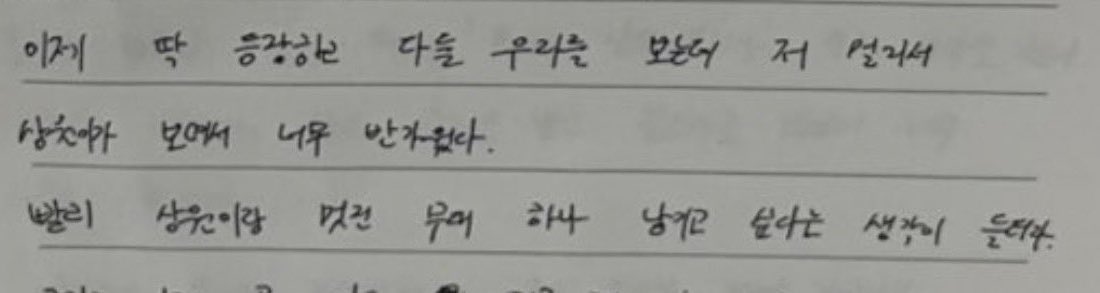 이제 딱 등장하고 다들 우리를 보는데 저 멀리서
상원이가 보여서 너무 반가웠다.
빨리 상원이랑 멋진 무대 하나 남기고 싶다는 생각이 들더라.